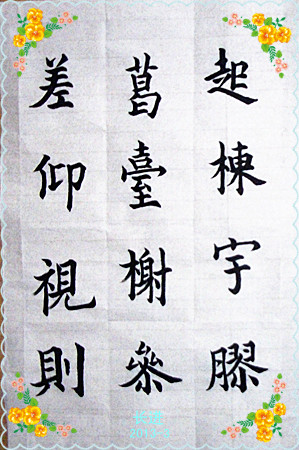 起棟宇膠
葛臺榭參
差仰視則